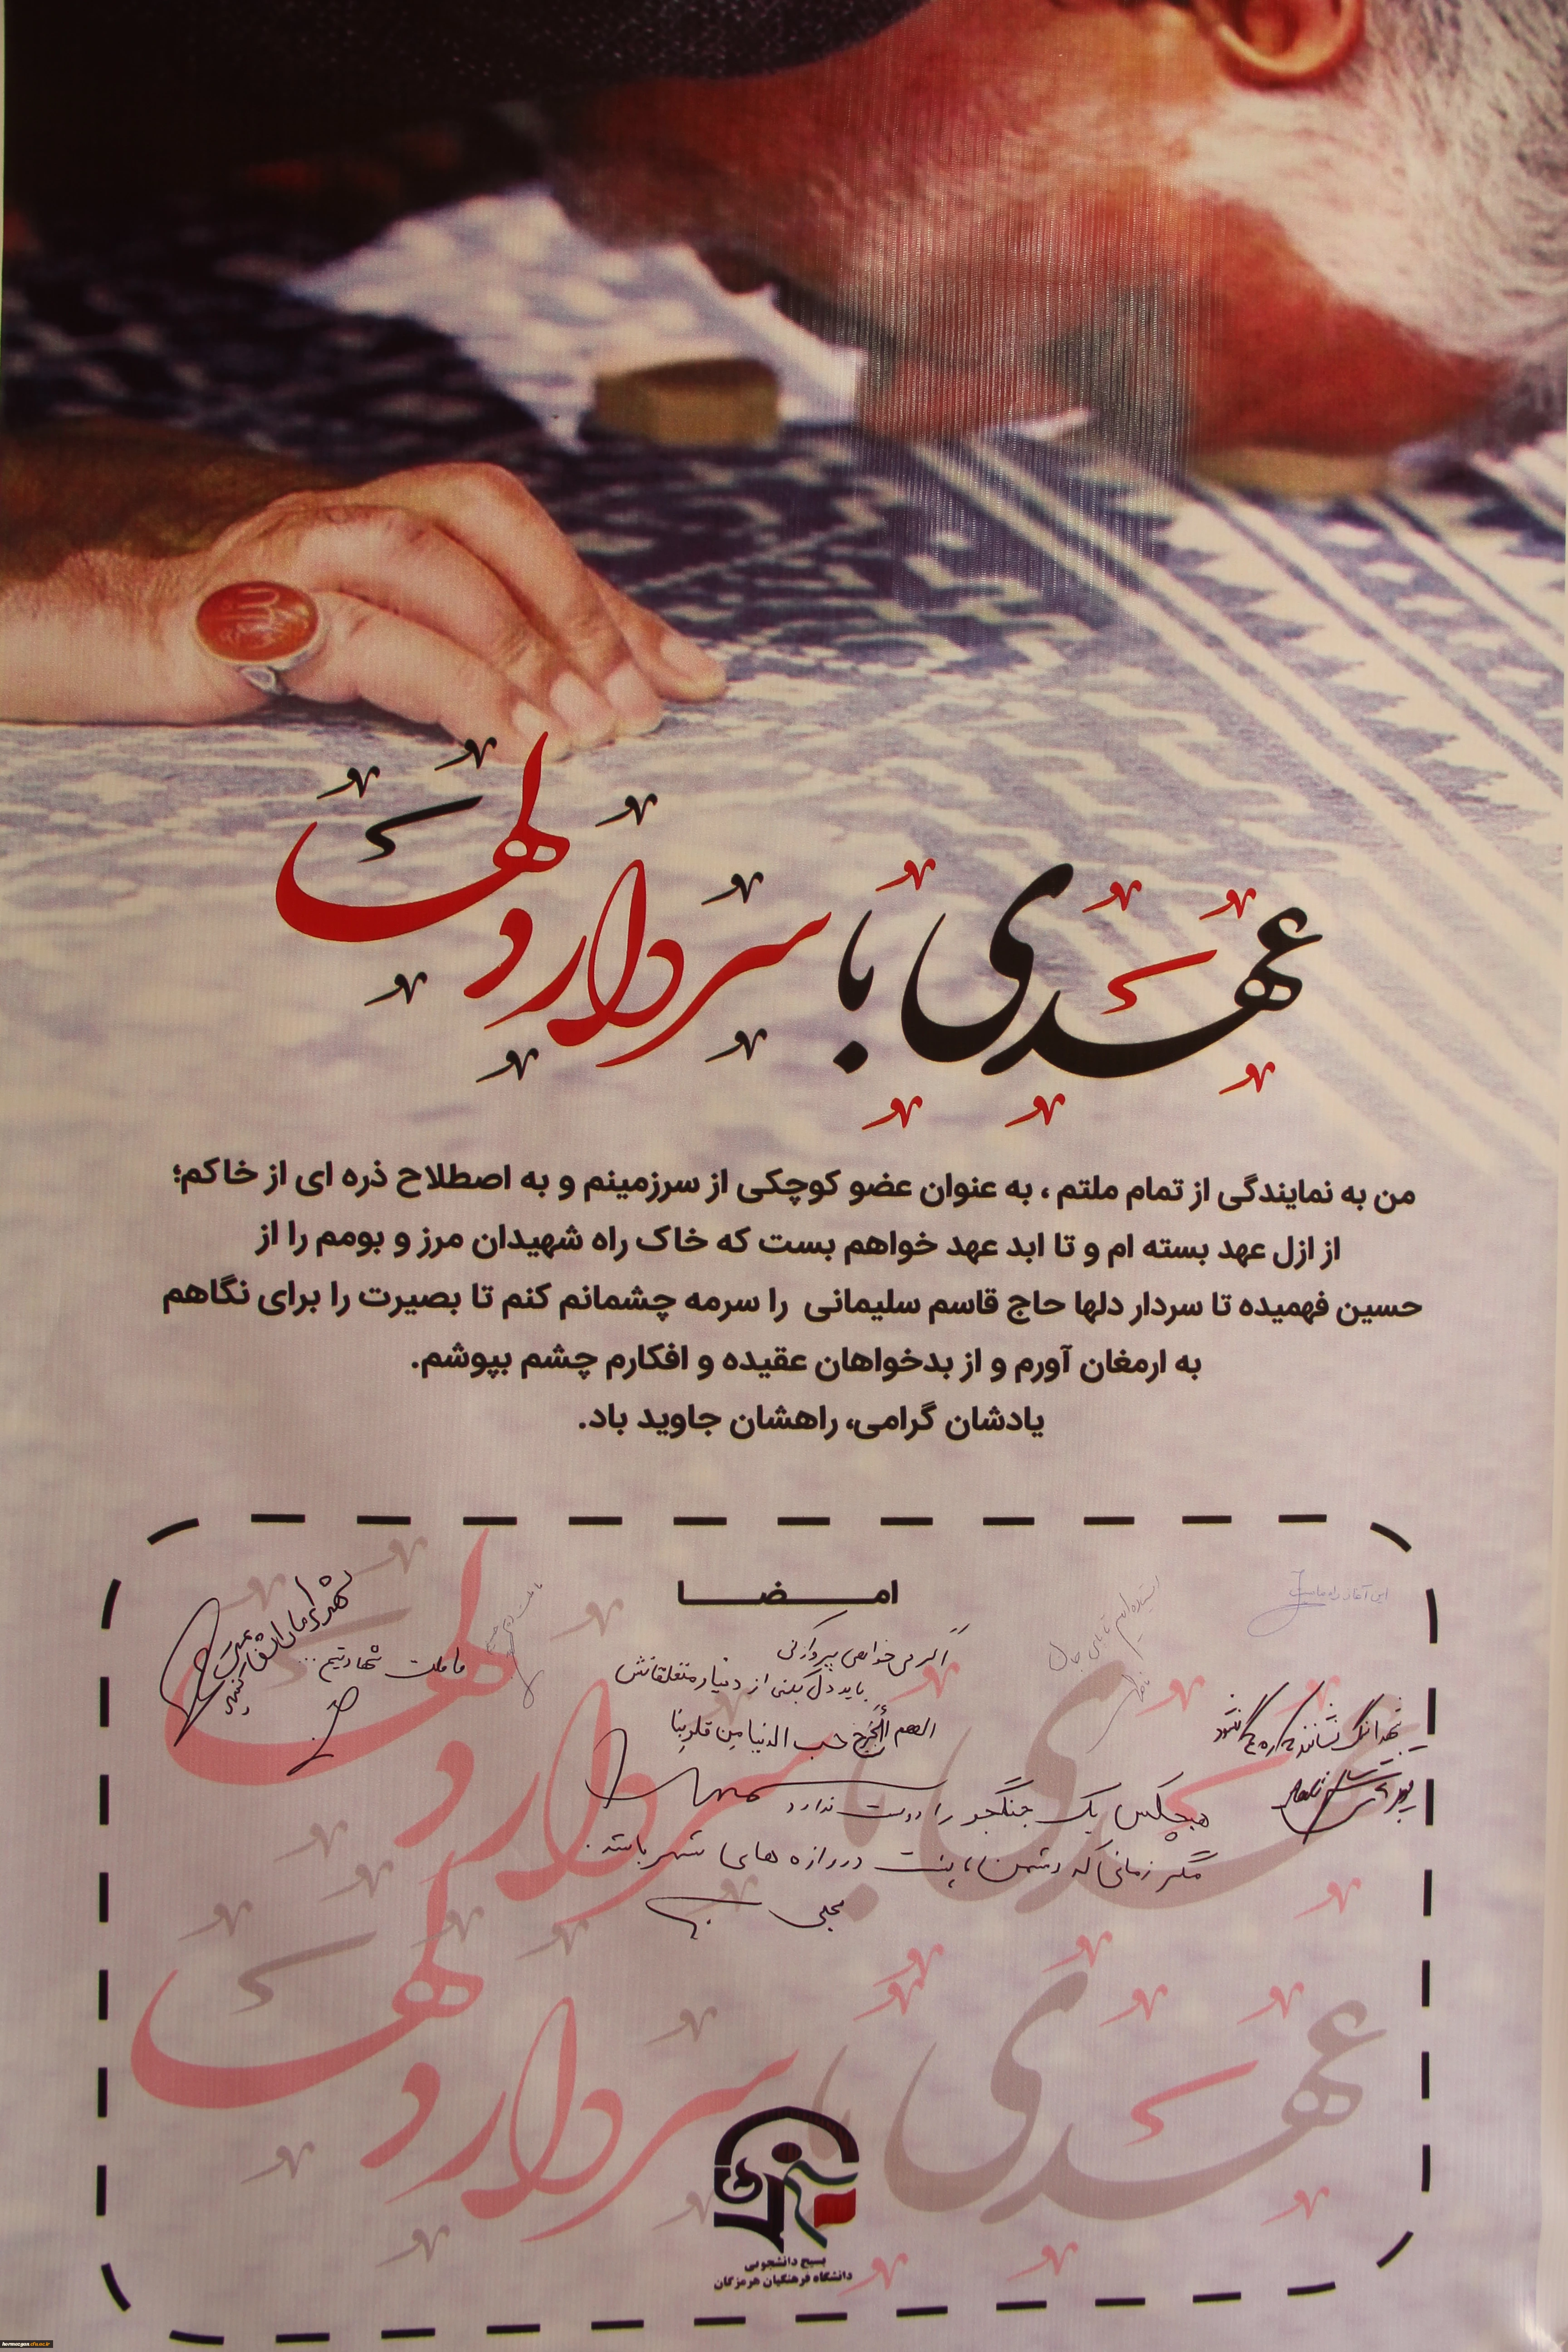 عهدی با سردار دلها
من به نمایندگی از تمام ملتم ، به عنوان عضو کوچکی از سرزمینم و به اصطلاح ذره ای از خاکم؛
از ازل عهد بسته ام و تا ابد عهد خواهم بست که خاک راه شهیدان مرز و بومم را از
حسین فهمیده تا سردار دلها حاج قاسم سلیمانی را سرمه چشمانم کنم تا بصیرت را برای نگاهم
به ارمغان آورم و از بدخواهان عقیده و افکارم چشم بپوشم.
یادشان گرامی، راهشان جاوید باد.
امضا
اگر می خواهی پرواز کنی
باید دل بکنی از دنیا و متعلقاتش
اللهم أخرج حب الدنیا من قلوبنا
ما ملت شهادتیم ...
هیچکس یک جنگجو را دوست ندارد
مگر زمانی که دشمن، پشت دروازه های شهر باشد.
عهدی با سردار دلها
عهدی با سردار دلها
بسیج دانشجویی
دانشگاه فرهنگیان هرمزگان
hormozgan.cfu.ac.ir